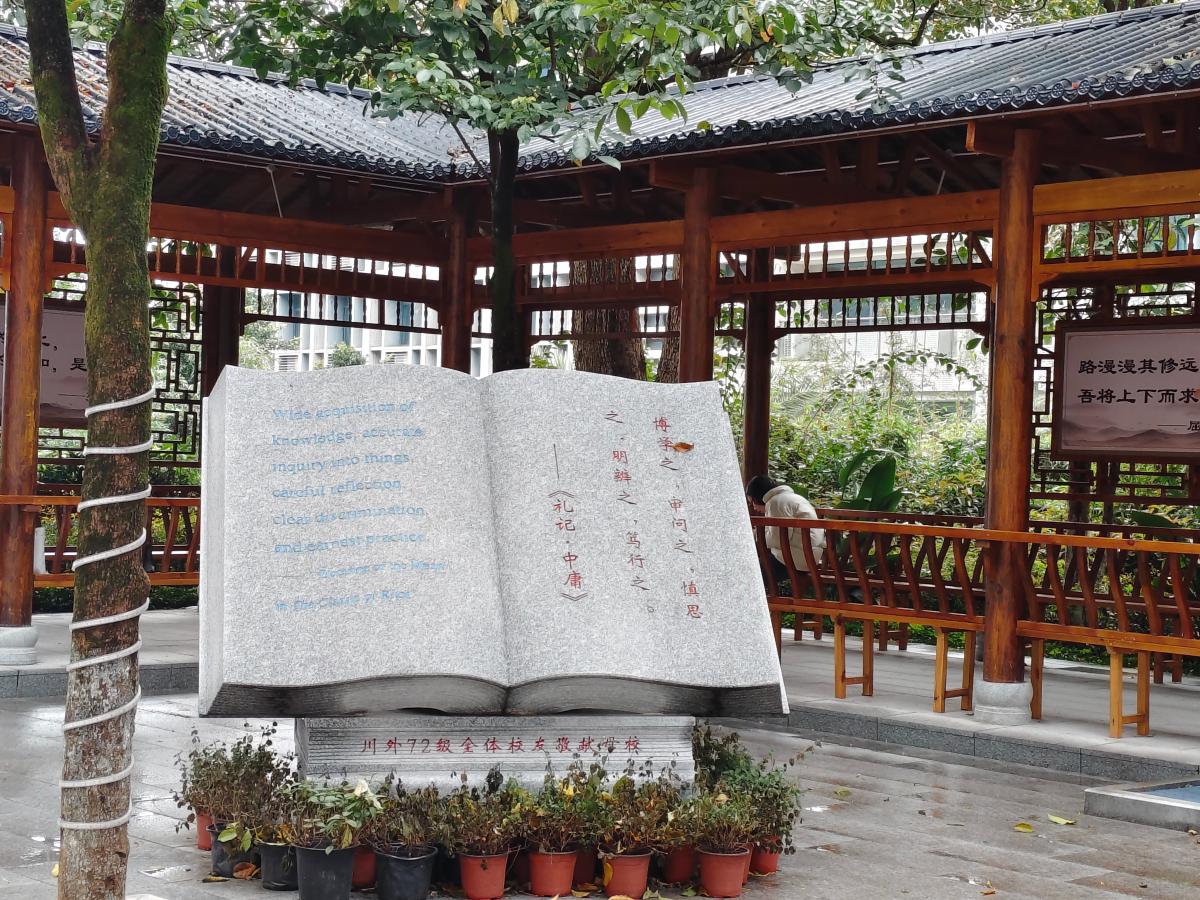 Wide acquisition of
knowledge, accurate
inquiry into things,
careful reflection,
clear discrimination,
and earnest practice.
——Doctrine of the Mean
in The Classic of Rites
博学之，审问之，慎思
之，明辨之，笃行之。
——《礼记·中庸》
川外72级全体校友敬献母校
路漫漫其修远
吾将上下而求
——屈
和，是